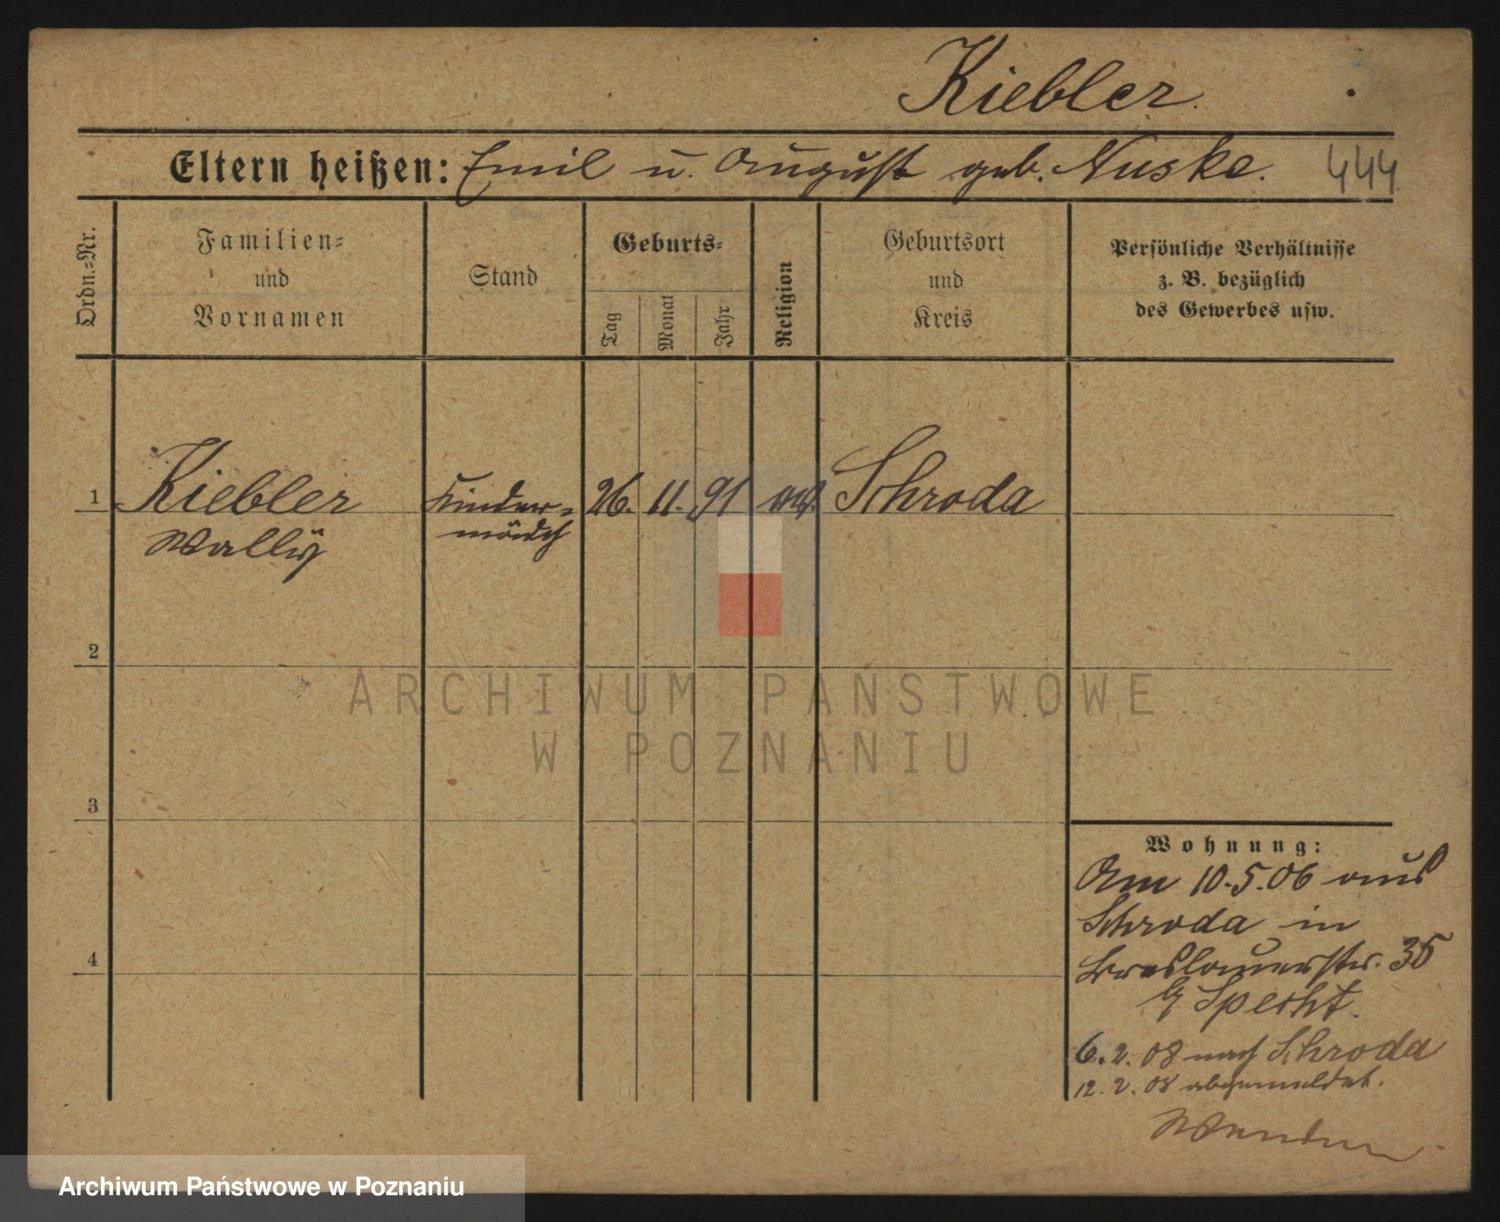 Kiebler.
Eltern heißen: Emil u. August geb. Nuske. 444
Ordn.-Nr.
Familien-
und
Vornamen
Stand
Geburts-
Tag
Monat
Jahr
Religion
Geburtsort
und
Kreis
Persönliche Verhältnisse
z. B. bezüglich
des Gewerbes usw.
1 Kiebler Kinder- 26. 11. 91 Schroda
Wally mädch
2
3
4
Wohnung:
Am 10.5.06 aus
Schroda in
Breslauerstr. 35
b/ Specht.
6.2.08 nach Schroda
12.2.08 abgemeldet.
Wenden
ARCHIWUM PAŃSTWOWE
W POZNANIU
Archiwum Państwowe w Poznaniu